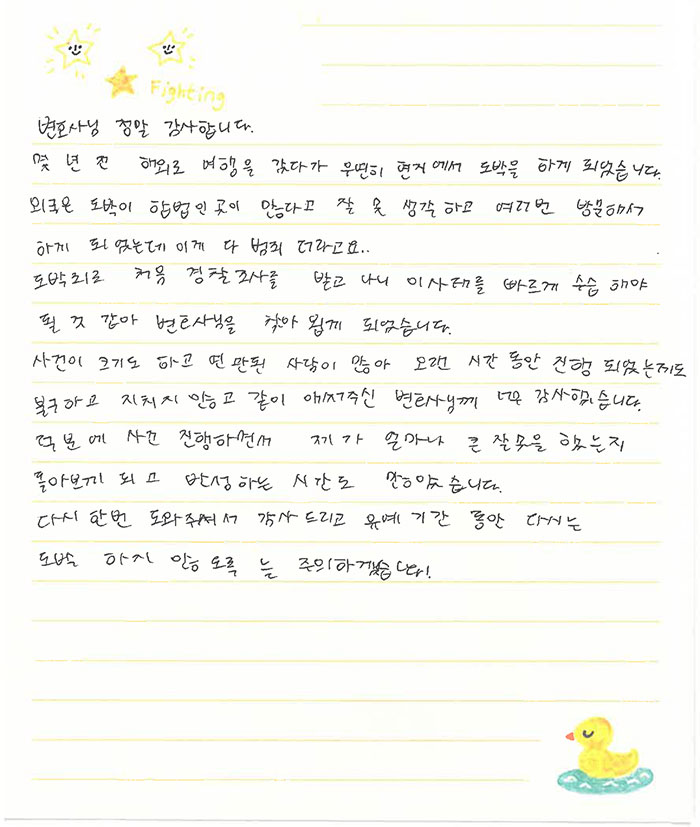 Fighting
변호사님 정말 감사합니다.
몇 년 전 해외로 여행을 갔다가 우연히 현지에서 도박을 하게 되었습니다.
외국은 도박이 합법인 곳이 많다고 잘 못 생각하고 여러번 방문해서
하게 되었는데 이게 다 범죄 더라고요..
도박죄로 처음 경찰조사를 받고 나니 이사태를 빠르게 수습 해야
될 것 같아 변호사님을 찾아 뵙게 되었습니다.
사건이 크기도 하고 연관된 사람이 많아 오랜 시간 동안 진행 되었는데도
불구하고 지치지 않고 같이 애써주신 변호사님께 너무 감사했습니다.
덕분에 사건 진행하면서 제가 얼마나 큰 잘못을 했는지
돌아보게 되고 반성하는 시간도 많았습니다.
다시 한번 도와주셔서 감사 드리고 유예 기간 동안 다시는
도박 하지 않도록 늘 주의하겠습니다!